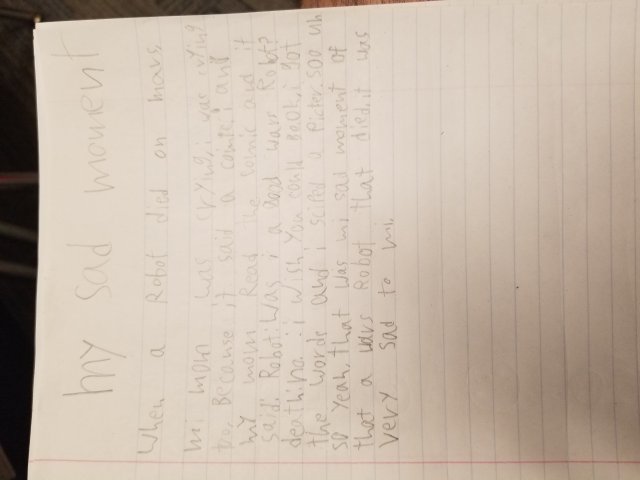 my sad moment
When a Robot died on mars
mi mom was crying, i was crying
too, Because it said a comic, i and
my mom Read the comic and it
said, Robot: was i a good mars Robot?
i wish you could Both i got
the words and i a picter. soo uh
so yeah, that was mi sad moment of
that a mars Robot that died, it was
very sad to mi.